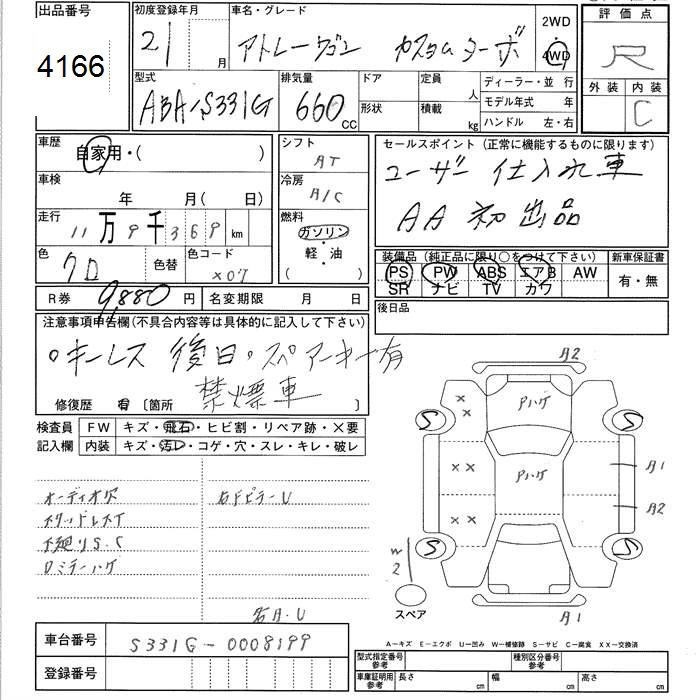 出品番号 初度登録年月 車名・グレード 2WD 評価点
4166 21 月 アトレーワゴン カスタムターボ 4WD R
型式 排気量 ドア 定員 ディーラー・並 行 外装 内装
ABA-S331G 660 CC 形状 積載 人 kg モデル年式 年 C
ハンドル 左・右
車歴 自家用・( ) シフト AT セールスポイント (正常に機能するものに限ります)
車検 年 月( 日) 冷房 A/C ユーザー 仕入れ車
走行 11万9千369km 燃料 ガソリン・軽・油 ( ) AA 初出品
色 クロ 色替 色コード X07 装備品 (純正品に限り○をつけて下さい) 新車保証書
PS PW ABS エアB AW 有・無
SR ナビ TV カワ
R券 9,880円 名変期限 月 日 後日品
注意事項申告欄(不具合内容等は具体的に記入して下さい)
○キーレス 後日・スペアーキー有
禁煙車
修復歴 有 〔箇所 〕
検査員 FW キズ・飛石・ヒビ割・リペア跡・×要
記入欄 内装 キズ・汚レ・コゲ・穴・スレ・キレ・破レ
A2
アハゲ
アハゲ
S S S S
×× ×× ××
A1
A2
W2
スペア
A1
オーディオ欠 右Fピラー U
下廻りS.C
車台番号 S331G-0008199
登録番号
A-キズ E-エクボ U-凹み W-補修跡 S-サビ C-腐食 XX-交換済
型式指定番号 参考 種別区分番号 参考
車庫証明用 参考 長さ cm 幅 cm 高さ cm